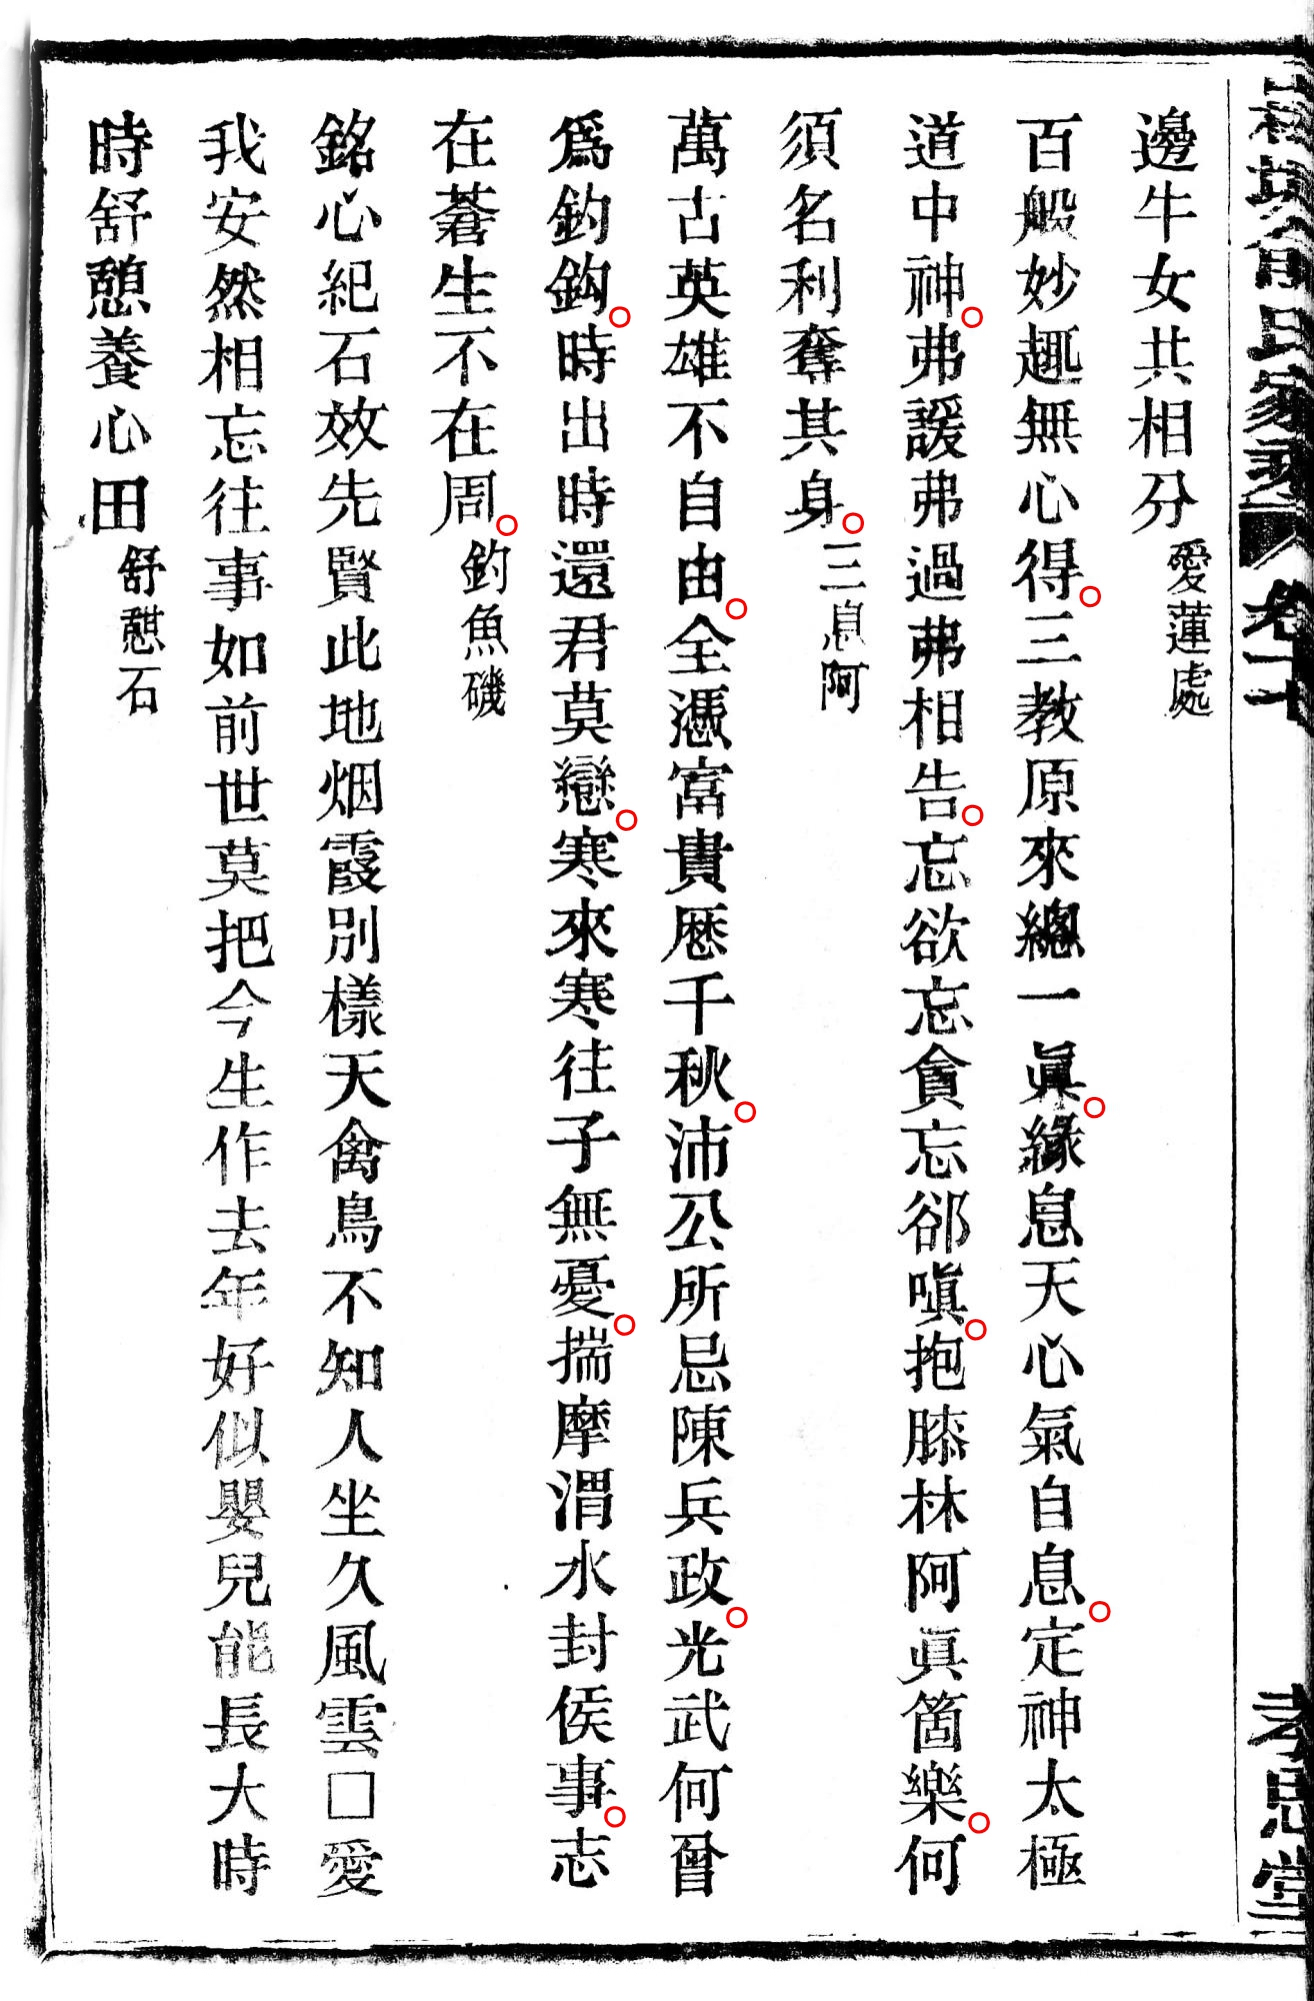 邊牛女共相分愛蓮處
百般妙趣無心得。三教原來總一眞。緣息天心氣自息。定神太極
道中神。弗諼弗過弗相告。忘欲忘貪忘郤嗔。抱膝林阿眞箇樂。何
須名利奪其身。三息阿
萬古英雄不自由。全憑富貴歷千秋。沛公所忌陳兵政。光武何曾
爲釣鈎。時出時還君莫戀。寒來寒往子無憂。揣摩渭水封侯事。志
在蒼生不在周。釣魚磯
銘心紀石效先賢此地烟霞別樣天禽鳥不知人坐久風雲□愛
我安然相忘往事如前世莫把今生作去年好似嬰兒能長大時
時舒憩養心田舒憩石
孝思堂